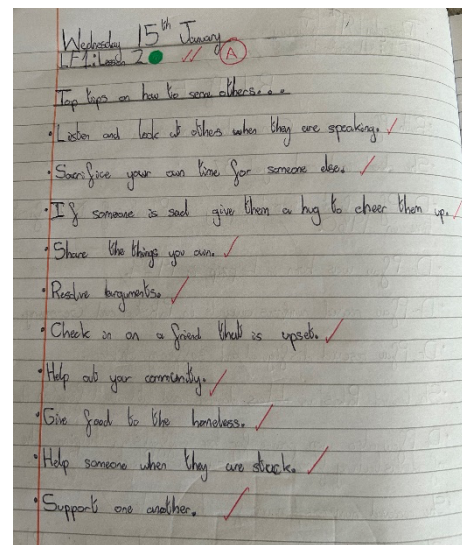 Wednesday 15th January
LF1: Lesson 2 A
Top tips on how to serve others...
• Listen and look at others when they are speaking.
• Sacrifice your own time for someone else.
• If someone is sad give them a hug to cheer them up.
• Share the things you own.
• Resolve arguments.
• Check in on a friend that is upset.
• Help out your community.
• Give food to the homeless.
• Help someone when they are stuck.
• Support one another.